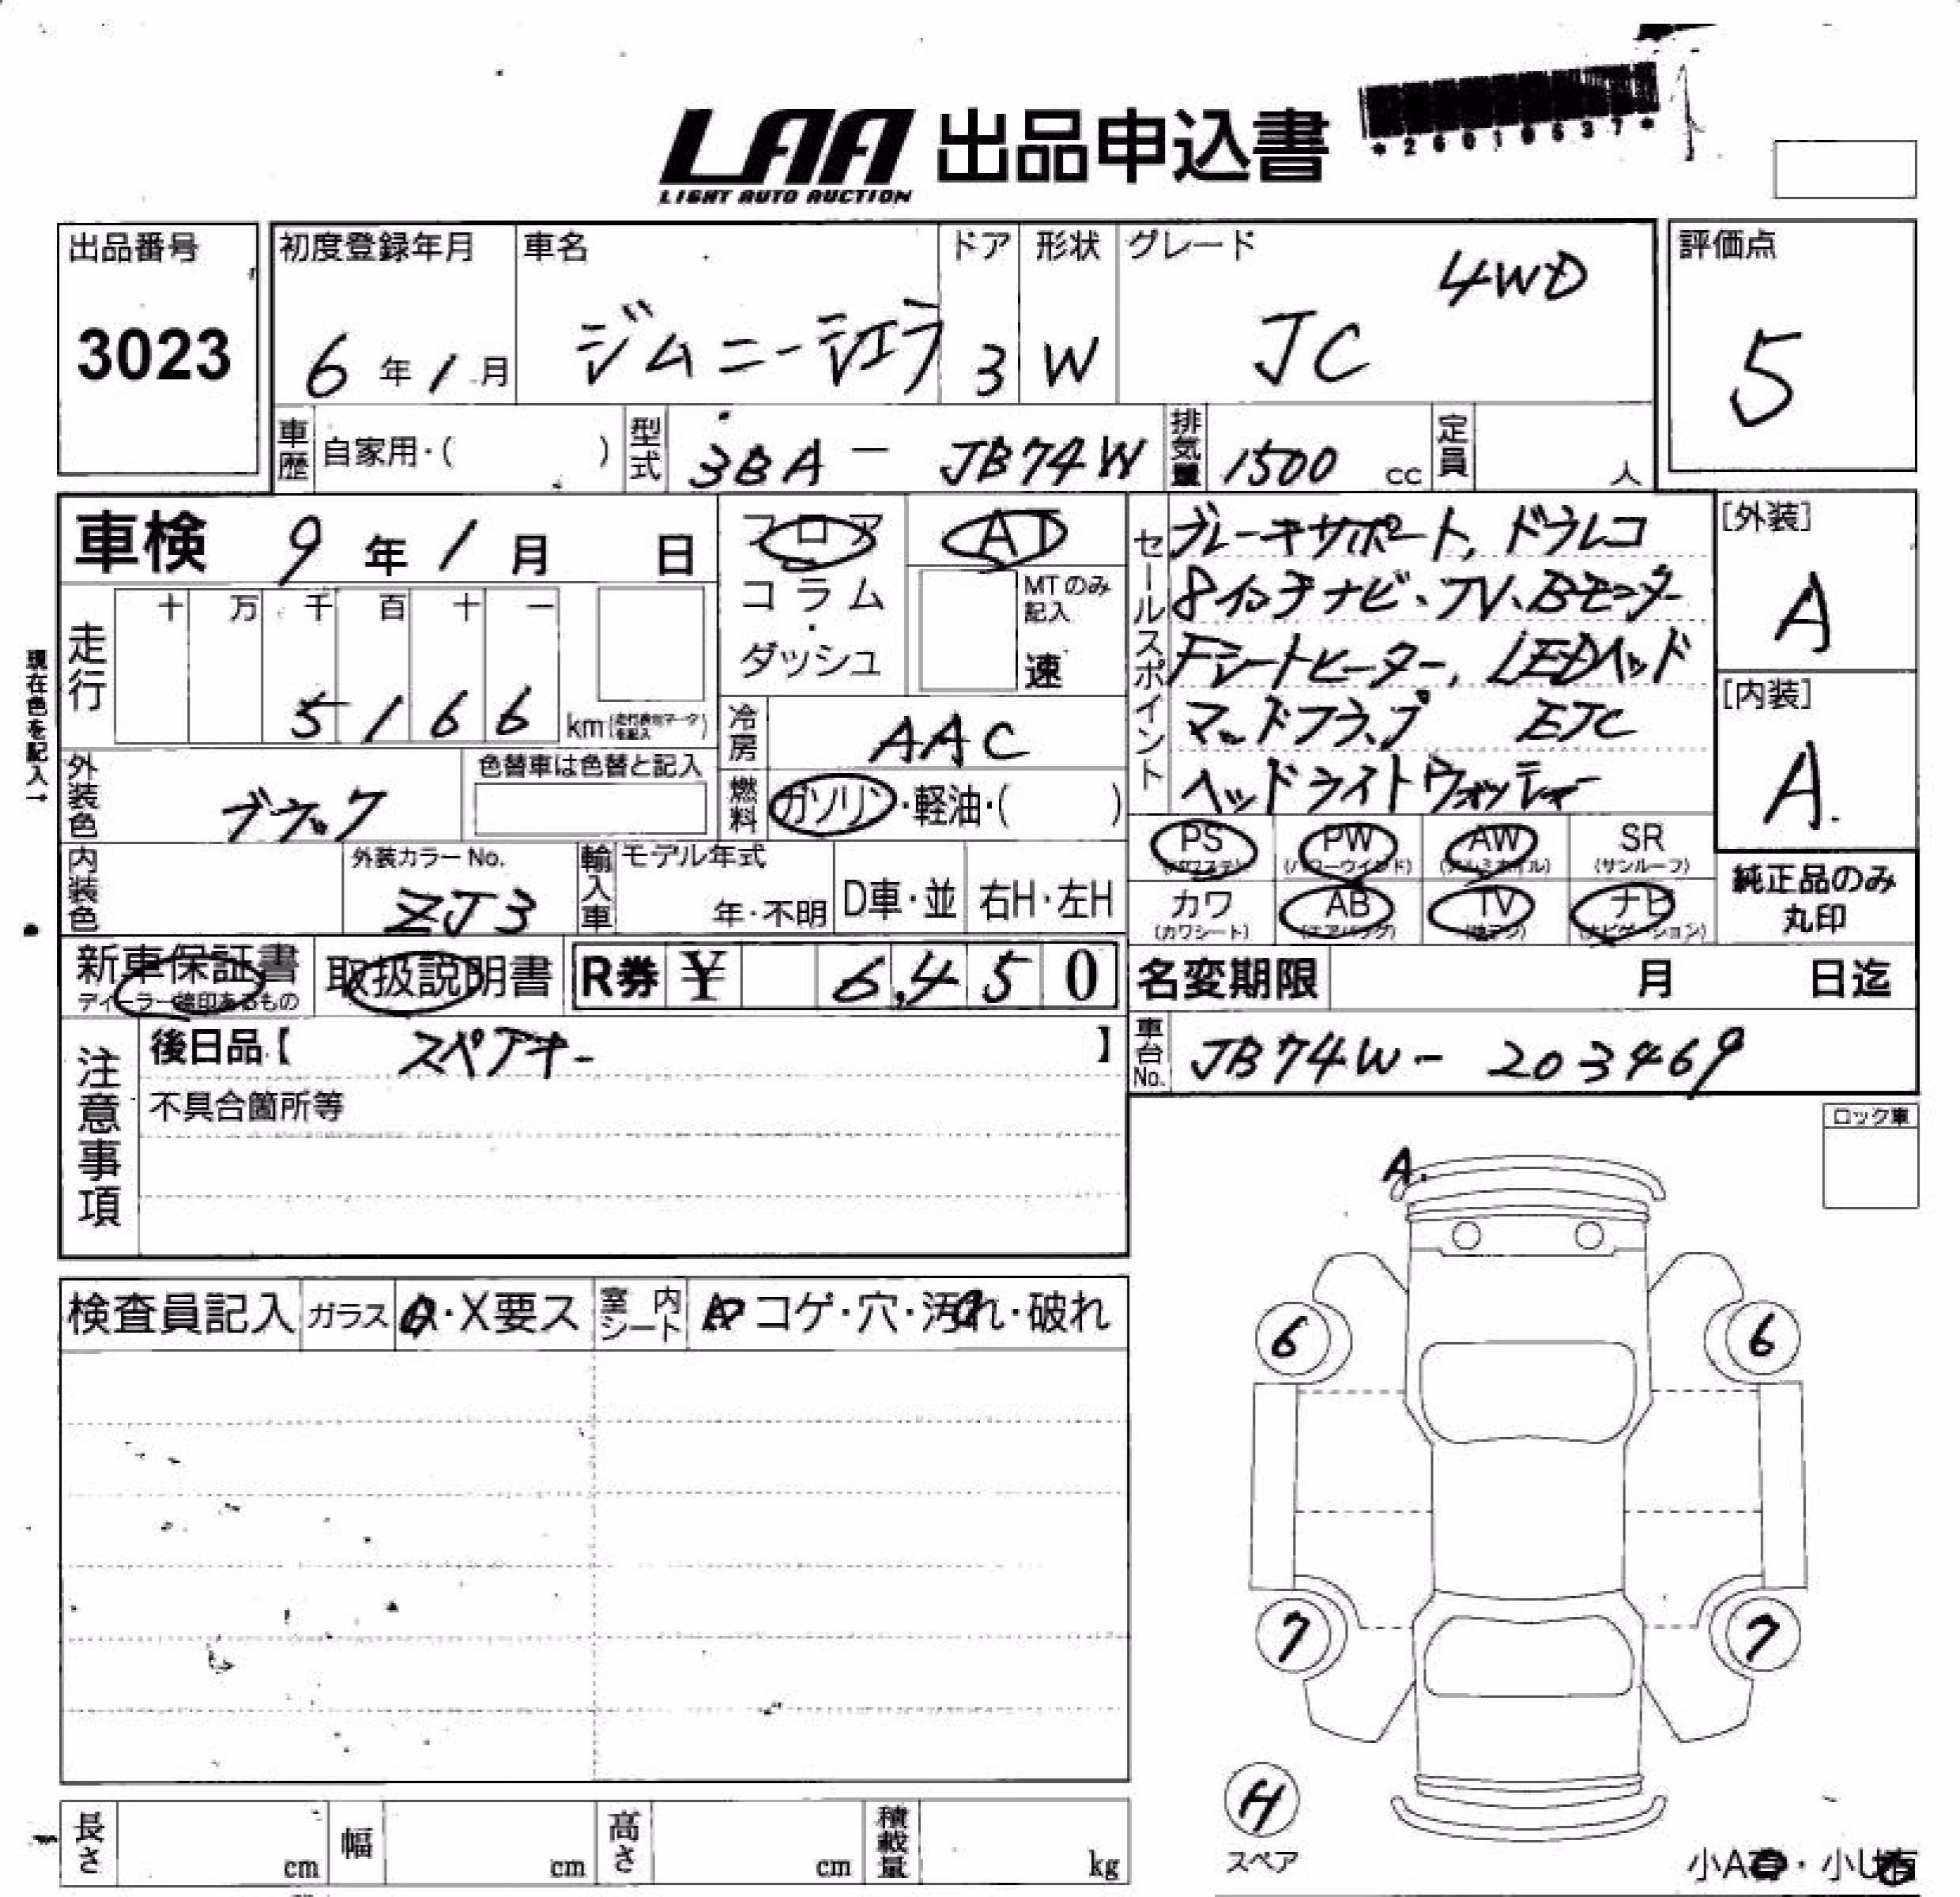 LAA 出品申込書
LIGHT AUTO AUCTION
*26010637*
出品番号
3023
初度登録年月
6年1月
車名
ジムニーシエラ
ドア
3
形状
W
グレード
4WD
JC
評価点
5
車歴 自家用・( )
型式 3BA - JB74W
排気量 1500 cc
定員 人
車検 9年1月 日
フロア
コラム
・
ダッシュ
AT
MTのみ
記入
速
セールスポイント
ブレーキサポート, ドラレコ
8インチナビ、TV、Bモニター
Fシートヒーター, LEDヘッド
マッドフラップ ETC
ヘッドライトウォッシャー
[外装]
A
[内装]
A.
現在色を記入→
走行
十 万 千 百 十 一
5 1 6 6 km
冷房 AAC
燃料 ガソリン・軽油・( )
外装色 ブラック
色替車は色替と記入
内装色
外装カラーNo.
ZJ3
輸入車
モデル年式
年・不明
D車・並
右H・左H
PS
(パワステ)
PW
(パワーウインド)
AW
(アルミホイル)
SR
(サンルーフ)
カワ
(カワシート)
AB
(エアバック)
TV
ナビ
(ナビゲーション)
純正品のみ
丸印
新車保証書
取扱説明書
R券 ¥ 6,450
名変期限 月 日迄
車台No. JB74W- 203469
注意事項
後日品【 スペアキー 】
不具合箇所等
ロック車
A.
検査員記入
ガラス A・X要ス
室内シート
コゲ・穴・汚れ・破れ
6 6
7 7
H
スペア
長さ cm
幅 cm
高さ cm
積載量 kg
小A・小U